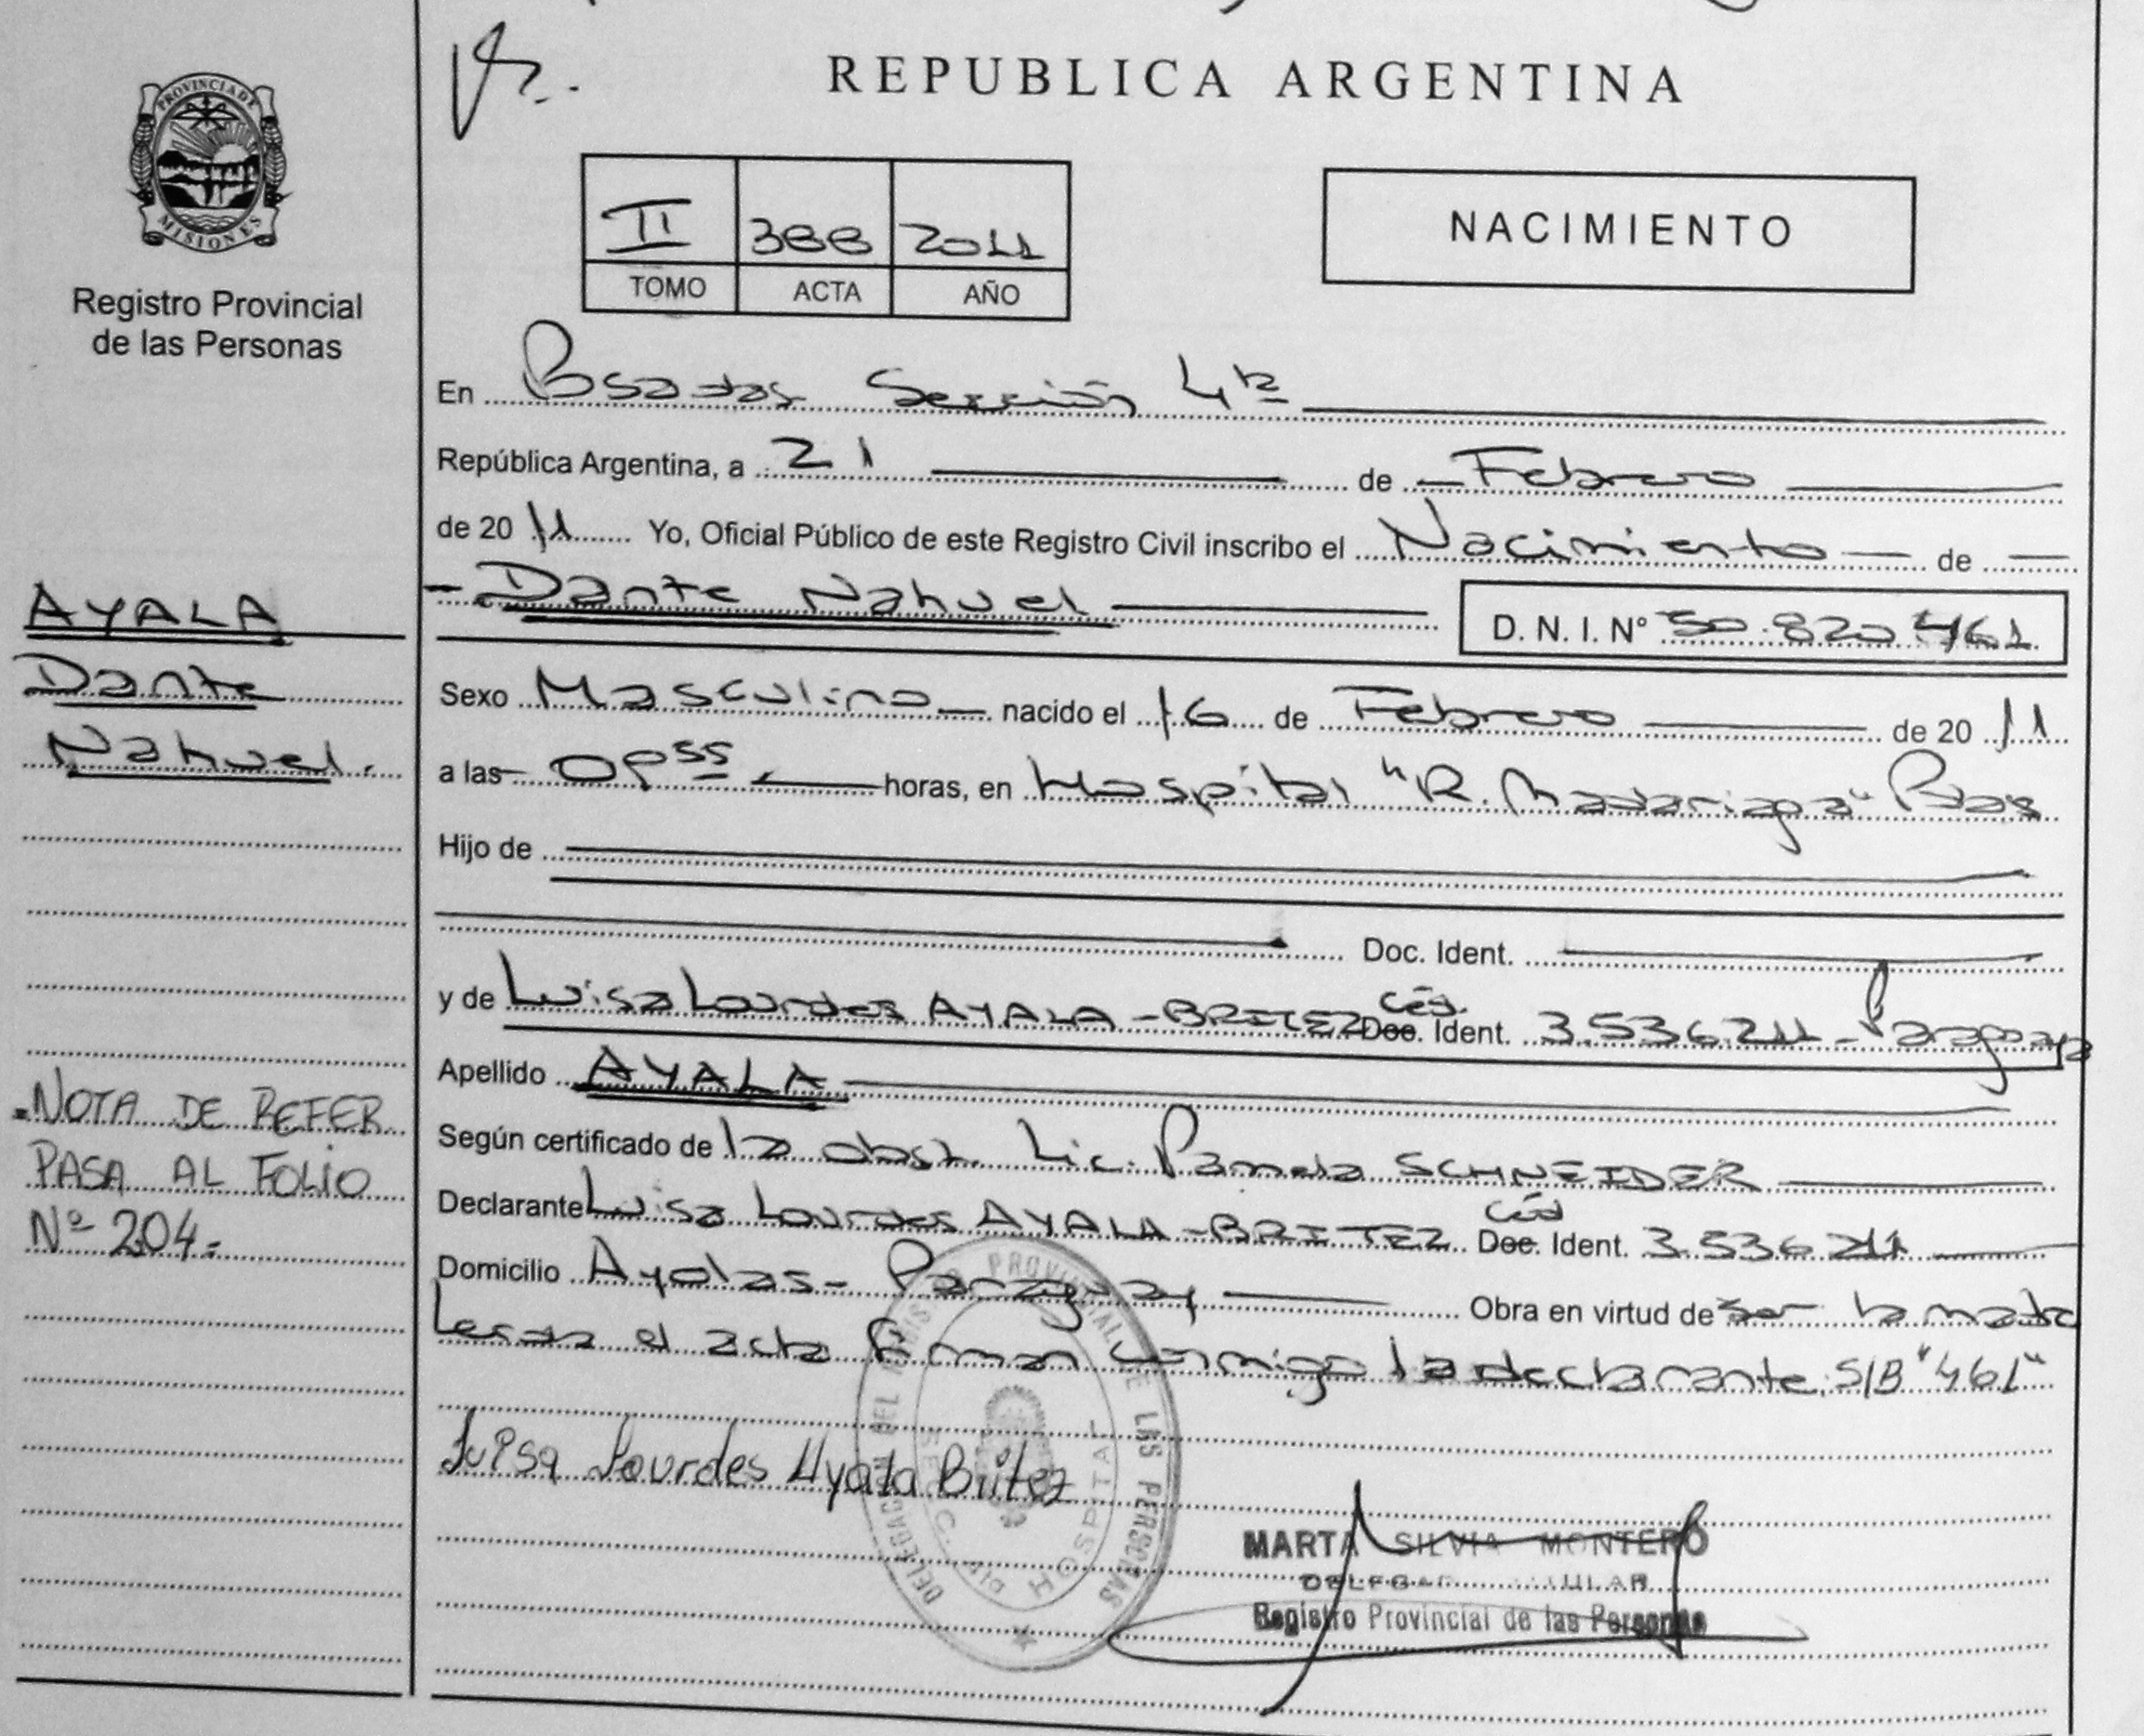 REPUBLICA ARGENTINA
PROVINCIA DE
MISIONES
Registro Provincial
de las Personas
II 388 2011
TOMO ACTA AÑO
NACIMIENTO
En Sección 4ta
República Argentina, a 21 de Febrero
de 2011 Yo, Oficial Público de este Registro Civil inscribo el Nacimiento de
Dante Nahuel D. N. I. N° 50.820.461
AYALA
Dante
Nahuel.
Sexo Masculino nacido el 16 de Febrero de 2011
a las 55 horas, en Hospital "R. Madariaga" Pdas
Hijo de
Doc. Ident.
y de Luisa Lourdes AYALA-BRITEZ Céd. Doc. Ident. 3.536.211 - Paraguaya
Apellido AYALA
Según certificado de la obst. Lic. Pamela SCHNEIDER
Declarante Luisa Lourdes AYALA-BRITEZ Céd Doc. Ident. 3.536.211
Domicilio Ayolas - Paraguay Obra en virtud de ser la madre
el acta firman conmigo la declarante, S/B "461"
NOTA DE REFER
PASA AL FOLIO
Nº 204.
Luisa Lourdes Ayala Britez
DELEGACION DEL REGISTRO PROVINCIAL DE LAS PERSONAS
HOSPITAL
MARTA SILVIA MONTERO
Registro Provincial de las Personas